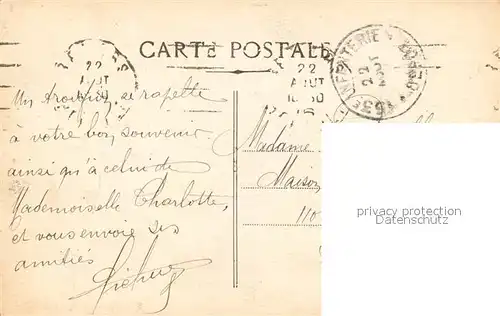 CARTE POSTALE
22
AOUT
22
AOUT
INFANTERIE
63e
22
AOUT
Un se rapelle
à votre bon souvenir
ainsi qu'à celui de
Mademoiselle Charlotte,
et vous envoie ses
amitiés
Madame
Maison
110
privacy protection
Datenschutz